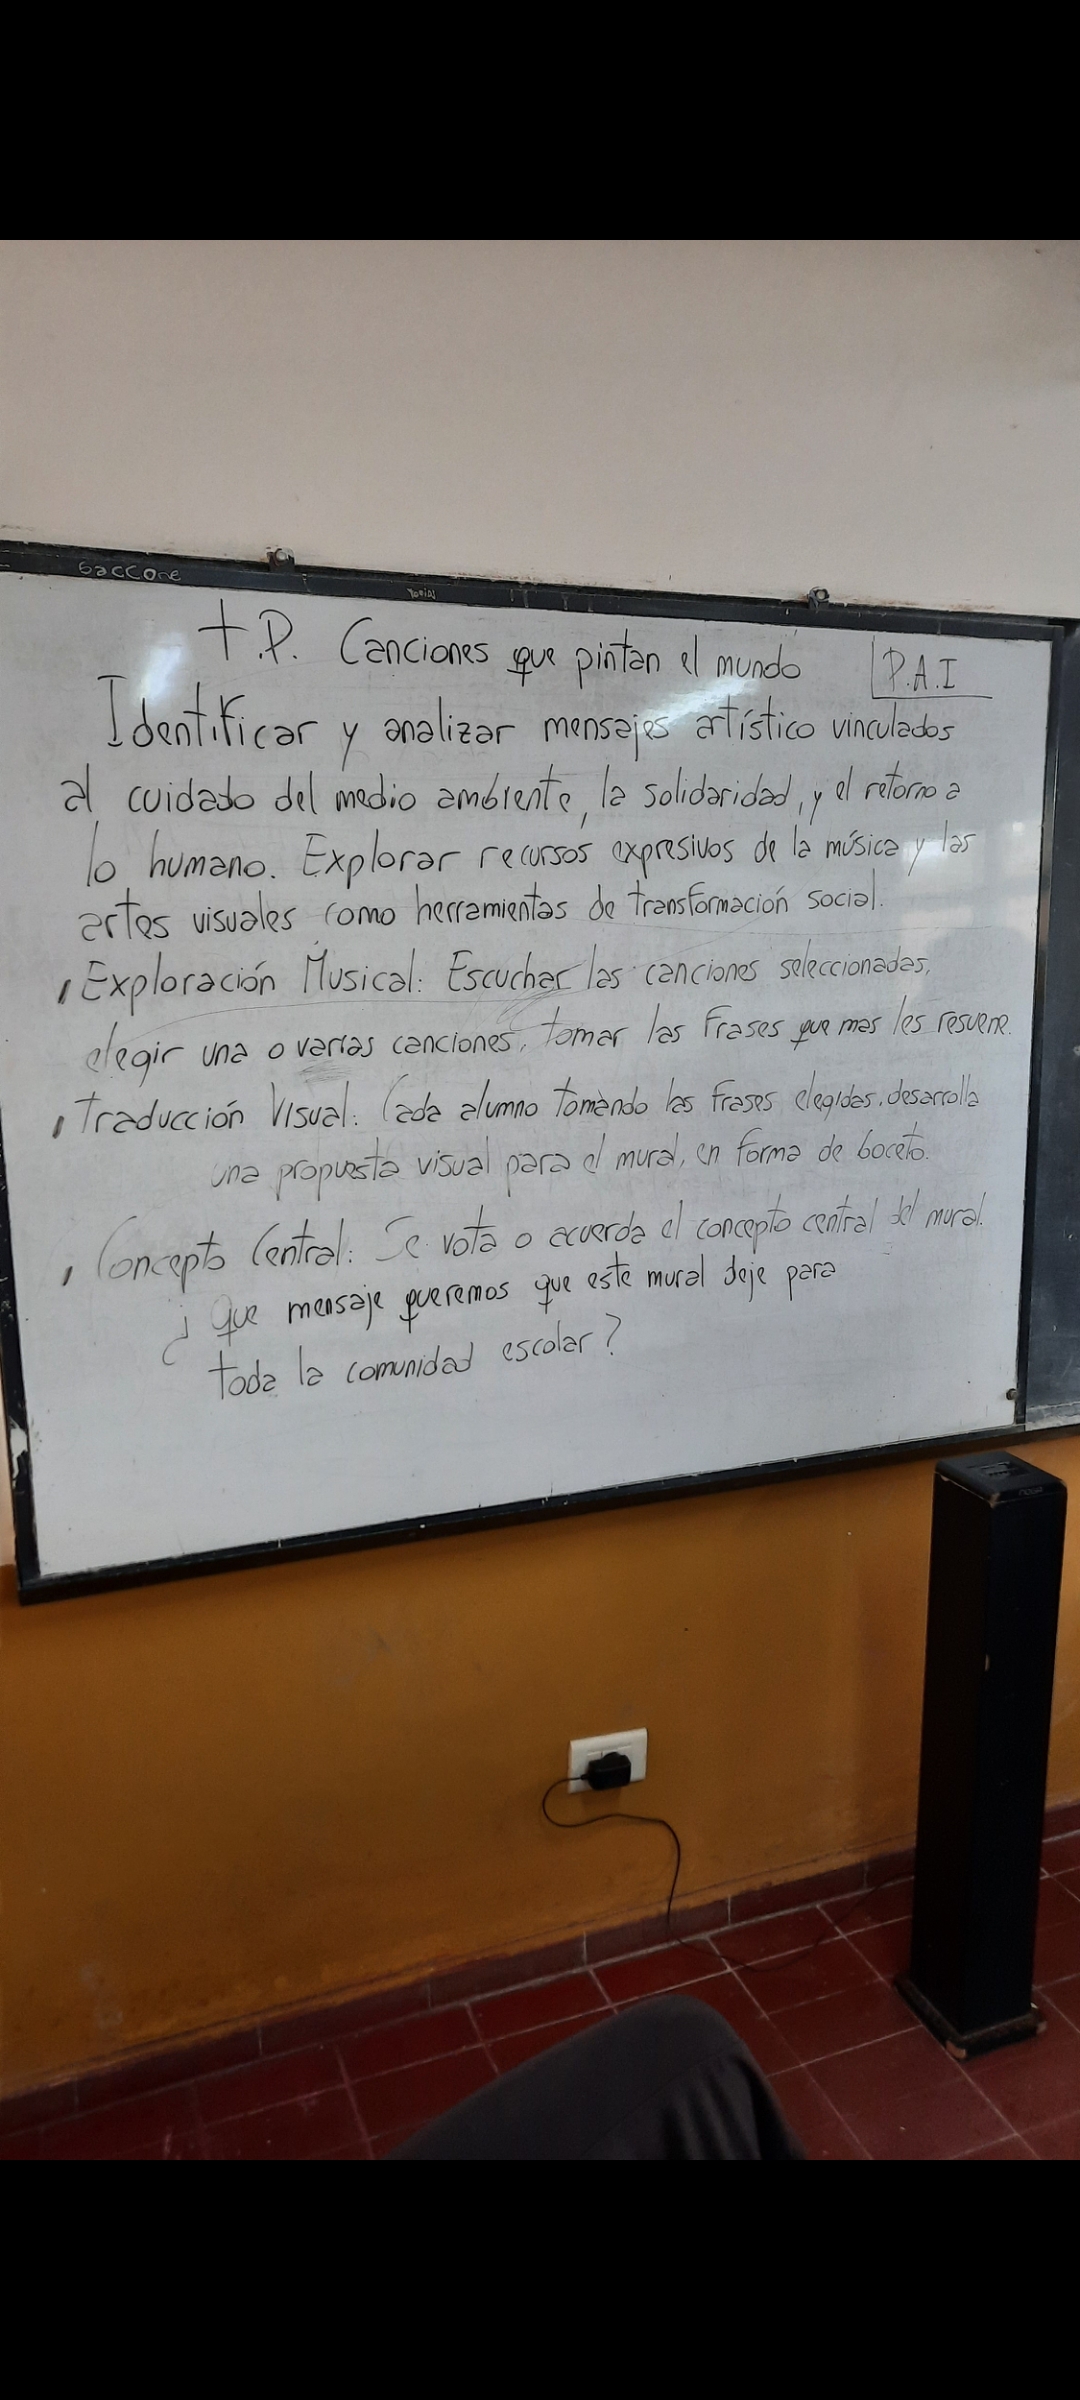 Baccone
T.P. Canciones que pintan el mundo P.A.I
Identificar y analizar mensajes artístico vinculados
al cuidado del medio ambiente, la solidaridad, y el retorno a
lo humano. Explorar recursos expresivos de la música y las
artes visuales como herramientas de transformación social.
Exploración Musical: Escuchar las canciones seleccionadas,
elegir una o varias canciones, tomar las frases que mas les resuene.
Traducción Visual: Cada alumno tomando las frases elegidas, desarrolla
una propuesta visual para el mural, en forma de boceto.
Concepto Central: Se vota o acuerda el concepto central del mural.
¿Que mensaje queremos que este mural deje para
toda la comunidad escolar?